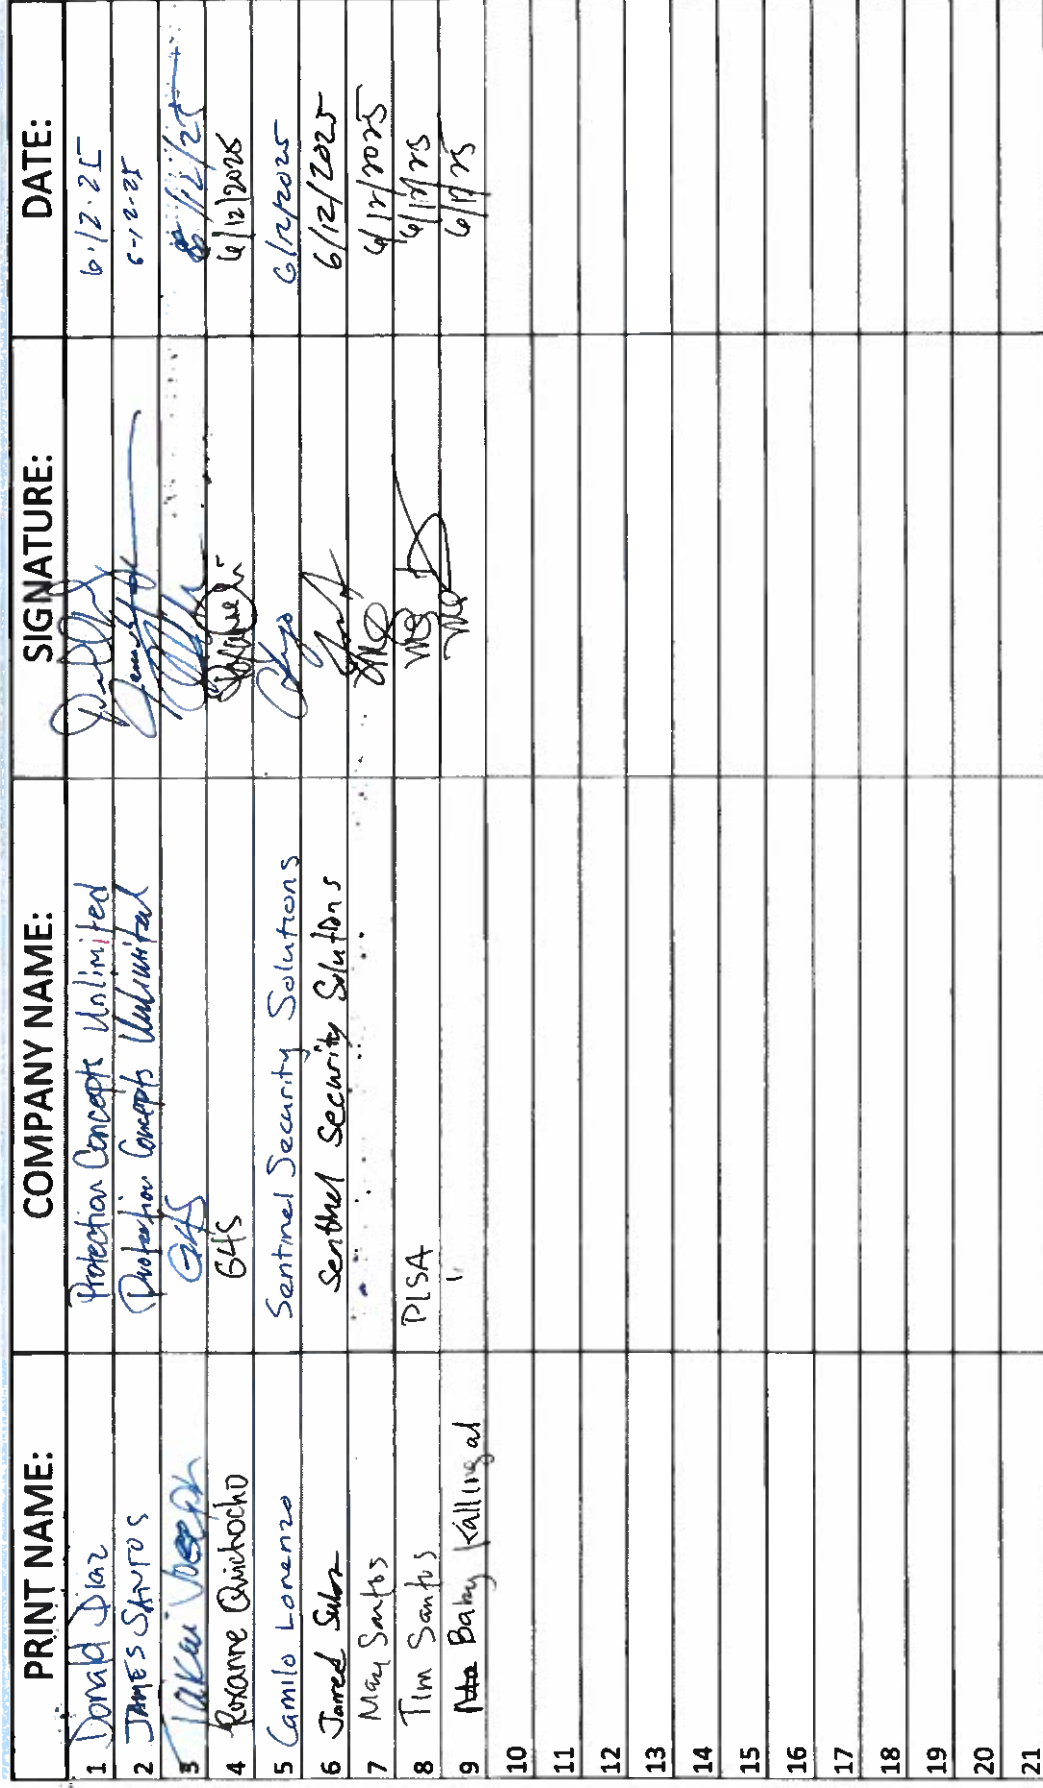 PRINT NAME: COMPANY NAME: SIGNATURE: DATE:
1 Donald Diaz Protection Concepts Unlimited 6.12.25
2 JAMES SANTOS Protection Concepts Unlimited 6-12-25
3 Takai Joseph G4S /12/25
4 Roxanne Quichocho G4S 6/12/2025
5 Camilo Lorenzo Sentinel Security Solutions 6/12/2025
6 Jarred Sentinel Security Solutions 6/12/2025
7 May Santos 6/12/2025
8 Tim Santos PLSA 6/12/25
9 Baby Kallingal " 6/12/25
10
11
12
13
14
15
16
17
18
19
20
21